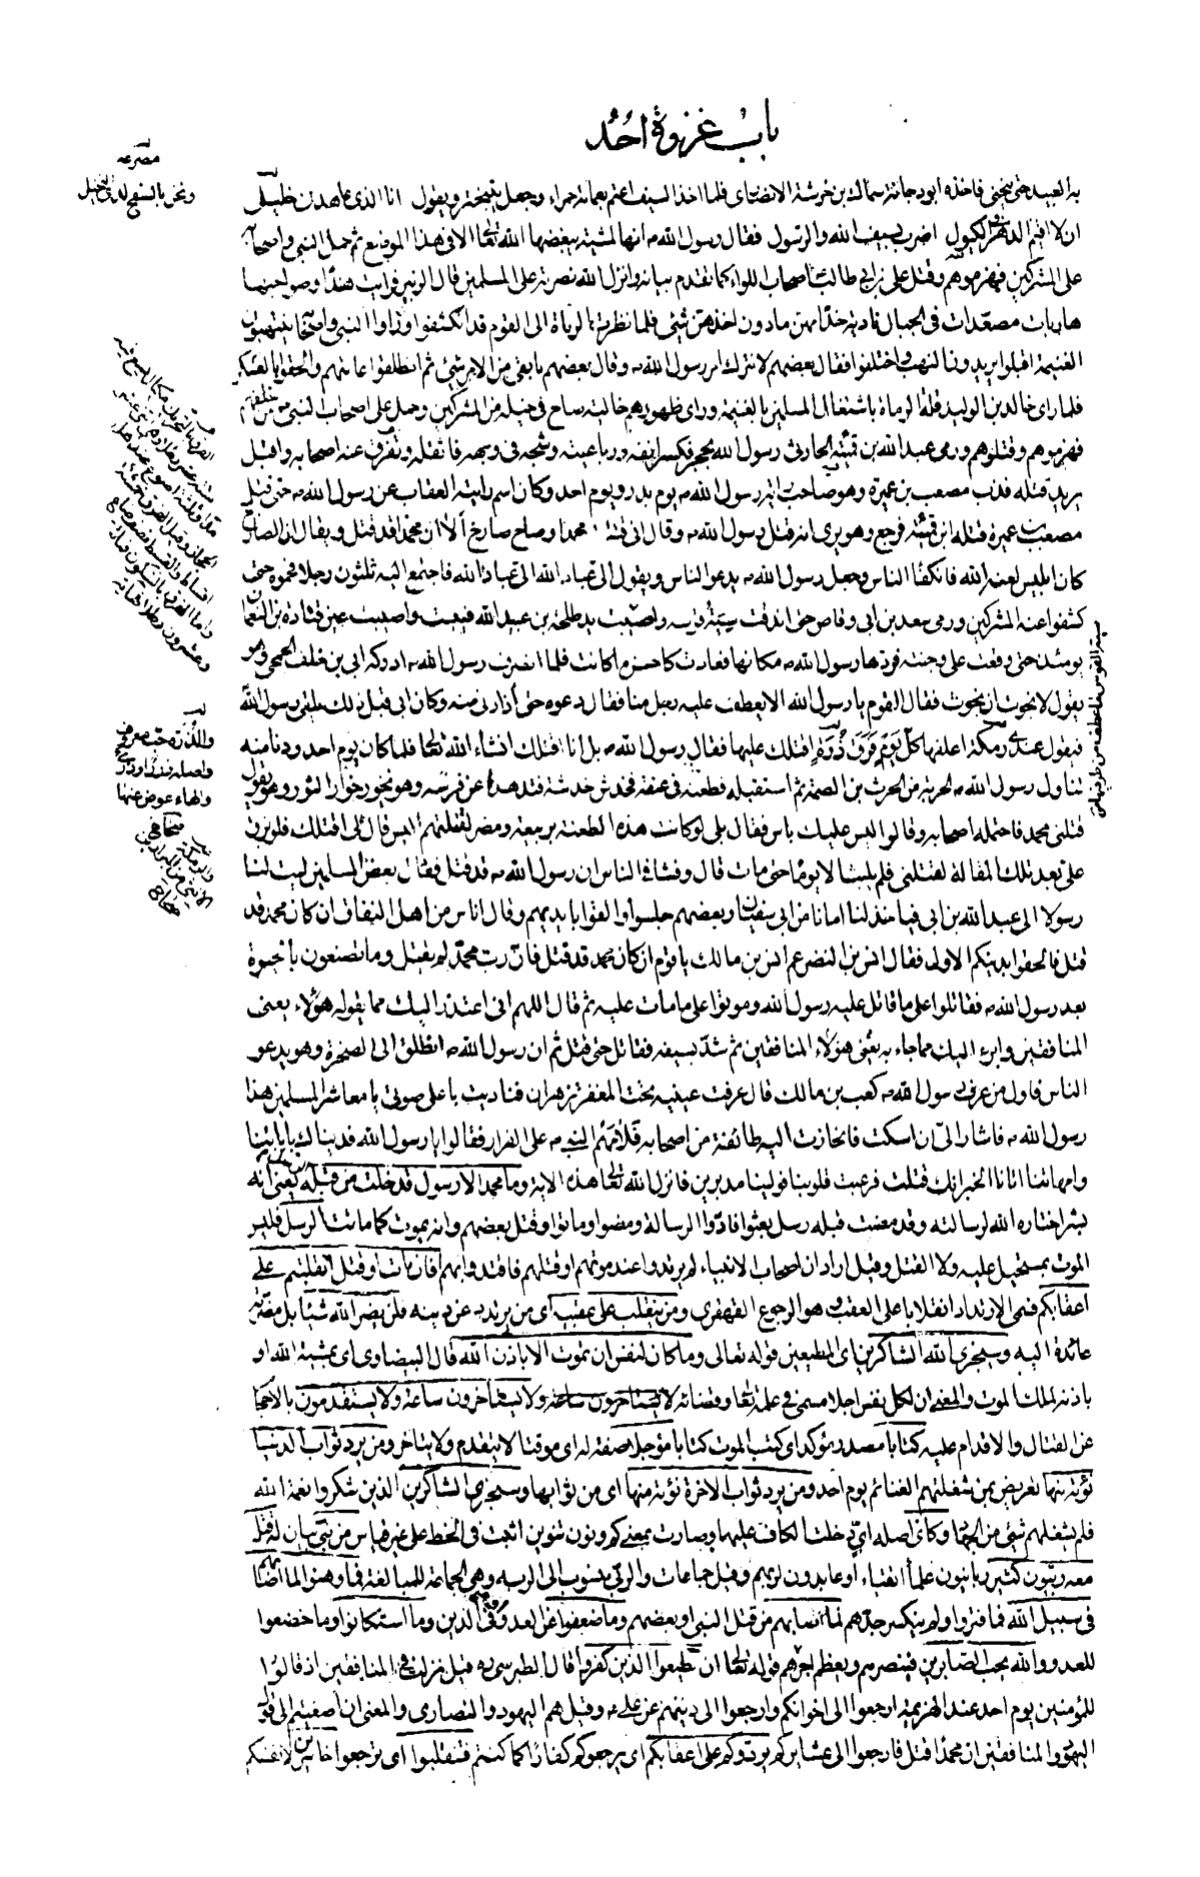 باب غزوة احُد
به العبيد حتى ينحني فاخذه ابو دجانة سماك بن خرشة الانصاري فلما اخذ السيف اعتم بعمامة حمراء وجعل يتبختر ويقول انا الذي عاهدني خليلي
ان لا اقيم الدهر في الكيول اضرب بسيف الله والرسول فقال رسول الله ص انها لمشية يبغضها الله تعا الا في هذا الموضع ثم حمل النبي واصحابه
على المشركين فهزموهم وقتل علي بن ابي طالب اصحاب اللواء كما تقدم بيانه وانزل الله نصرته على المسلمين قال الزبير فرايت هندا وصواحبها
هاربات مصعدات في الجبال نادية خدامهن مادون اخذهن شيئ فلما نظرت الرماة الى القوم قد انكشفوا وراوا النبي واصحابه ينتهبون
الغنيمة اقبلوا يريدون النهب واختلفوا فقال بعضهم لا نترك امر رسول الله ص وقال بعضهم ما بقي من الامر شيئ ثم انطلقوا عامتهم والحقوا بالعسكر
فلما راى خالد بن الوليد قلة الرماة باشتغال المسلمين بالغنيمة وراى ظهورهم خالية صاح في خيله من المشركين وحمل على اصحاب النبي ص من خلفهم
فهزموهم وقتلوهم ورمى عبد الله بن قمئة الحارثي رسول الله بحجر فكسر انفه ورباعيته وشجه في وجهه فاثقله وتفرق عنه اصحابه واقبل
يريد قتله فذب مصعب بن عميرة وهو صاحب راية رسول الله ص يوم بدر ويوم احد وكان اسم رايته العقاب عن رسول الله ص حتى قتل
مصعب بن عميرة قتله ابن قمئة فرجع وهو يرى انه قتل رسول الله ص وقال اني قتلت محمدا وصاح صارخ الا ان محمدا قد قتل ويقال ان الصارخ
كان ابليس لعنه الله فانكفأ الناس وجعل رسول الله ص يدعو الناس ويقول الى عباد الله الى عباد الله فاجتمع اليه ثلثون رجلا فحموه حتى
كشفوا عنه المشركين ورمى سعد بن ابي وقاص حتى اندقت سية قوسه واصيبت يد طلحة بن عبيد الله فيبست واصيبت عين قتادة بن النعمان
يومئذ حتى وقعت على وجنته فردها رسول الله ص مكانها فعادت كاحسن ما كانت فلما انصرف رسول الله ص ادركه ابي بن خلف الجمحي وهو
يقول لا نجوت ان نجوت فقال القوم يا رسول الله الا يعطف عليه رجل منا فقال دعوه حتى اذا دنى منه وكان ابي قبل ذلك يلقى رسول الله
فيقول عندي رمكة اعلفها كل يوم فرق ذرة اقتلك عليها فقال رسول الله ص بل انا اقتلك انشاء الله تعا فلما كان يوم احد ودنا منه
تناول رسول الله ص الحربة من الحرث بن الصمة ثم استقبله فطعنه في عنقه فخدش خدشة فتدهدأ عن فرسه وهو يخور خوار الثور وهو يقول
قتلني محمد فاحتمله اصحابه وقالوا ليس عليك باس فقال بلى لو كانت هذه الطعنة بربيعة ومضر لقتلتهم اليس قال لي اقتلك فلو بزق
علي بعد تلك المقالة لقتلني فلم يلبث الا يوما حتى مات قال وفشا في الناس ان رسول الله ص قد قتل فقال بعض المسلمين ليت لنا
رسولا الى عبد الله بن ابي فياخذ لنا امانا من ابي سفيان وبعضهم جلسوا والقوا بايديهم وقال اناس من اهل النفاق ان كان محمد قد
قتل فالحقوا بدينكم الاول فقال انس بن النضر عم انس بن مالك يا قوم ان كان محمد قد قتل فان رب محمد لم يقتل وما تصنعون بالحيوة
بعد رسول الله ص فقاتلوا على ما قاتل عليه رسول الله وموتوا على ما مات عليه ثم قال اللهم اني اعتذر اليك مما يقوله هؤلاء يعني
المنافقين وابرء اليك مما جاء به يعني هؤلاء المنافقين ثم شد بسيفه فقاتل حتى قتل ثم ان رسول الله ص انطلق الى الصخرة وهو يدعو
الناس فاول من عرف رسول الله ص كعب بن مالك قال عرفت عينيه تحت المغفر تزهران فناديت باعلى صوتي يا معاشر المسلمين هذا
رسول الله ص فاشار الي ان اسكت فانحازت اليه طائفة من اصحابه فلامهم النبي ص على الفرار فقالوا يا رسول الله فديناك بابائنا
وامهاتنا اتانا الخبر انك قتلت فرعبت قلوبنا فولينا مدبرين فانزل الله تعا هذه الاية وما محمد الا رسول قد خلت من قبله يعني انه
بشر اختاره الله لرسالته وقد مضت قبله رسل بعثوا فادوا الرسالة ومضوا وماتوا وقتل بعضهم وانه يموت كما ماتت الرسل فليس
الموت بمستحيل عليه ولا القتل وقيل اراد ان اصحاب الانبياء لم يرتدوا عند موتهم او قتلهم فاقتدوا بهم افان مات او قتل انقلبتم على
اعقابكم فسمى الارتداد انقلابا على العقب وهو الرجوع القهقرى ومن ينقلب على عقبيه اى من يرتدد عن دينه فلن يضر الله شيئا بل مضرته
عائدة اليه وسيجزي الله الشاكرين اي المطيعين قوله تعالى وما كان لنفس ان تموت الا باذن الله قال البيضاوى اى بمشية الله او
باذنه لملك الموت والمعنى ان لكل نفس اجلا مسمى في علمه تعا وقضائه لا يستاخرون ساعة ولا يستاخرون ساعة ولا يستقدمون بالاحجام
عن القتال والاقدام عليه كتابا مصدر مؤكد اى كتب الموت كتابا مؤجلا صفة له اى موقتا لا يتقدم ولا يتاخر ومن يرد ثواب الدنيا
نؤته منها تعريض بمن شغلتهم الغنائم يوم احد ومن يرد ثواب الاخرة نؤته منها اى من ثوابها وسنجزى الشاكرين الذين شكروا نعمة الله
فلم يشغلهم شيئ من الجهاد وكاين اصله اي دخلت الكاف عليها وصارت بمعنى كم والنون تنوين اثبت في الخط على غير قياس من نبي بيان له قتل
معه ربيون كثير ربانيون علماء اتقياء او عابدون لربهم وقيل جماعات والربى منسوب الى الربة وهي الجماعة للمبالغة فما وهنوا لما اصابهم
في سبيل الله فما فتروا ولم ينكسر جدهم لما اصابهم من قتل النبي او بعضهم وما ضعفوا عن العدو وفي الدين وما استكانوا وما خضعوا
للعدو والله يحب الصابرين فينصرهم ويعظم اجرهم قوله تعا ان تطيعوا الذين كفروا قال الطبرسي ره قيل نزلت في المنافقين اذ قالوا
للمؤمنين يوم احد عند الهزيمة ارجعوا الى اخوانكم وارجعوا الى دينهم عن علي ع وقيل هم اليهود والنصارى والمعنى ان اصغيتم الى قول
اليهود والمنافقين ان محمدا قتل فارجعوا الى عشايركم يردوكم على اعقابكم اى يرجعوكم كفارا كما كنتم فتنقلبوا اى ترجعوا خاسرين لانفسكم
مصرعه
ونحن بالسفح لدى النخيل
والذرة حب معروف
واصله ذرو او ذري
والهاء عوض عنها
صحاح
والرمكة
الانثى من البراذين
صحاح
سية القوس ما عطف من طرفيها ص